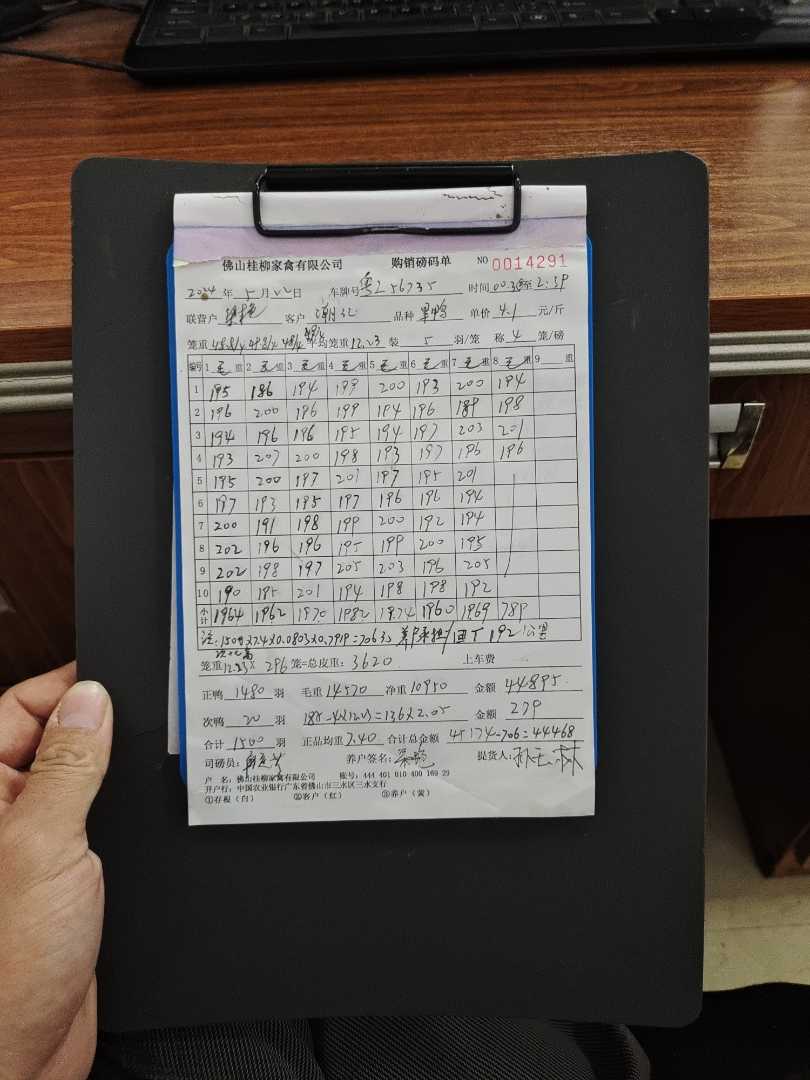 佛山桂柳家禽有限公司 购销磅码单 NO 0014291
2024年5月22日 车牌号 粤 56735 时间 00:38至2:39
联营户 客户 潮汇 品种 单价 4.1 元/斤
笼重 48.8/4 49.8/4 48/4 平均笼重 12.23 装 5 羽/笼 称 4 笼/磅
编号 1 毛 重 2 毛 重 3 毛 重 4 毛 重 5 毛 重 6 毛 重 7 毛 重 8 毛 重 9 重
1 195 186 194 199 200 193 200 194
2 196 200 196 199 194 196 189 198
3 194 196 196 195 194 197 203 201
4 193 207 200 198 193 197 196 196
5 195 200 197 201 197 195 201
6 197 193 195 197 196 196 194
7 200 191 198 199 200 192 194
8 202 196 196 195 199 200 195
9 202 198 197 205 203 196 205
10 190 195 201 194 198 198 192
小计 1964 1962 1970 1982 1974 1960 1969 789
注:1500×7.4×0.0803×0.7919=706元 养户承担/ 192公斤
笼重 12.23× 296 笼=总皮重: 3620 上车费
正鸭 1480 羽 毛重 14570 净重 10950 金额 44895
次鸭 20 羽 185-4×12.23=136×2.05 金额 279
合计 1500 羽 正品均重 7.40 合计总金额 45174-706=44468
司磅员: 养户签名: 提货人:
户 名:佛山桂柳家禽有限公司 账号:444 401 010 400 169 29
开户行:中国农业银行广东省佛山市三水区三水支行
①存根(白) ②客户(红) ③养户(黄)